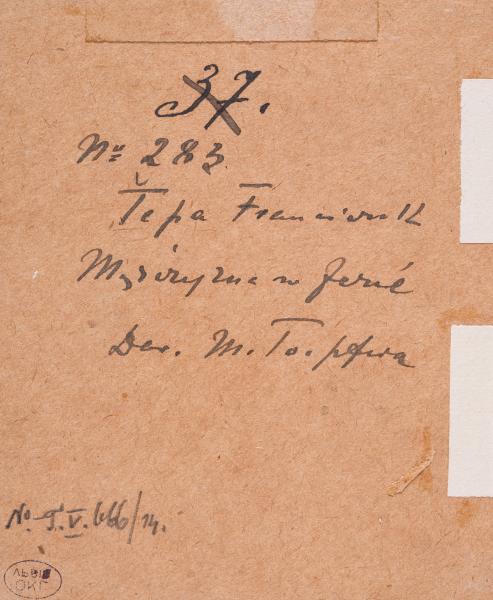 37.
No 283
Tepa Franciszek
Mężczyzna w fezie
Dar. M. Toepfera
No I.V. 666/14.
ЛЬВІВ
ОКГ